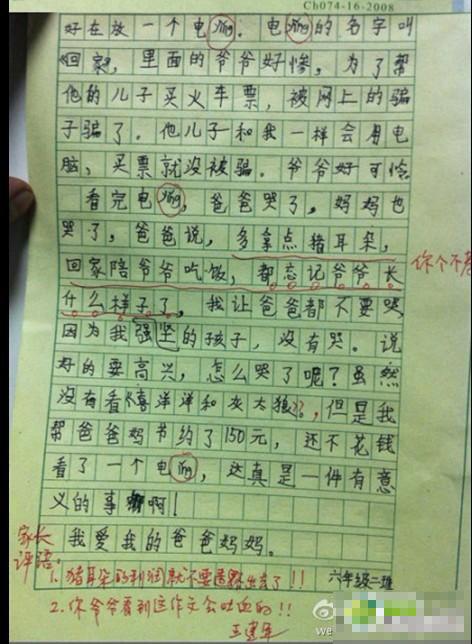 Ch074-16-2008
好在放一个电ying。电ying的名字叫
回家，里面的爷爷好惨，为了帮
他的儿子买火车票，被网上的骗
子骗了。他儿子和我一样会用电
脑，买票就没被骗。爷爷好可怜
看完电ying，爸爸哭了，妈妈也
哭了，爸爸说，多拿点猪耳朵，
回家陪爷爷吃饭，都忘记爷爷长
你个不孝
什么样子了，我让爸爸都不要哭，
因为我强坚的孩子，没有哭。说
好的要高兴，怎么哭了呢？虽然
没有看喜洋洋和灰太狼，但是我
帮爸爸妈节约了150元，还不花钱
看了一个电ying，这真是一件有意
义的事啊！
我爱我的爸爸妈妈。
家长
评语：
1.猪耳朵的利润就不要出去了！！
六年级二班
2.你爷爷看到这作文会吐血的！！
we